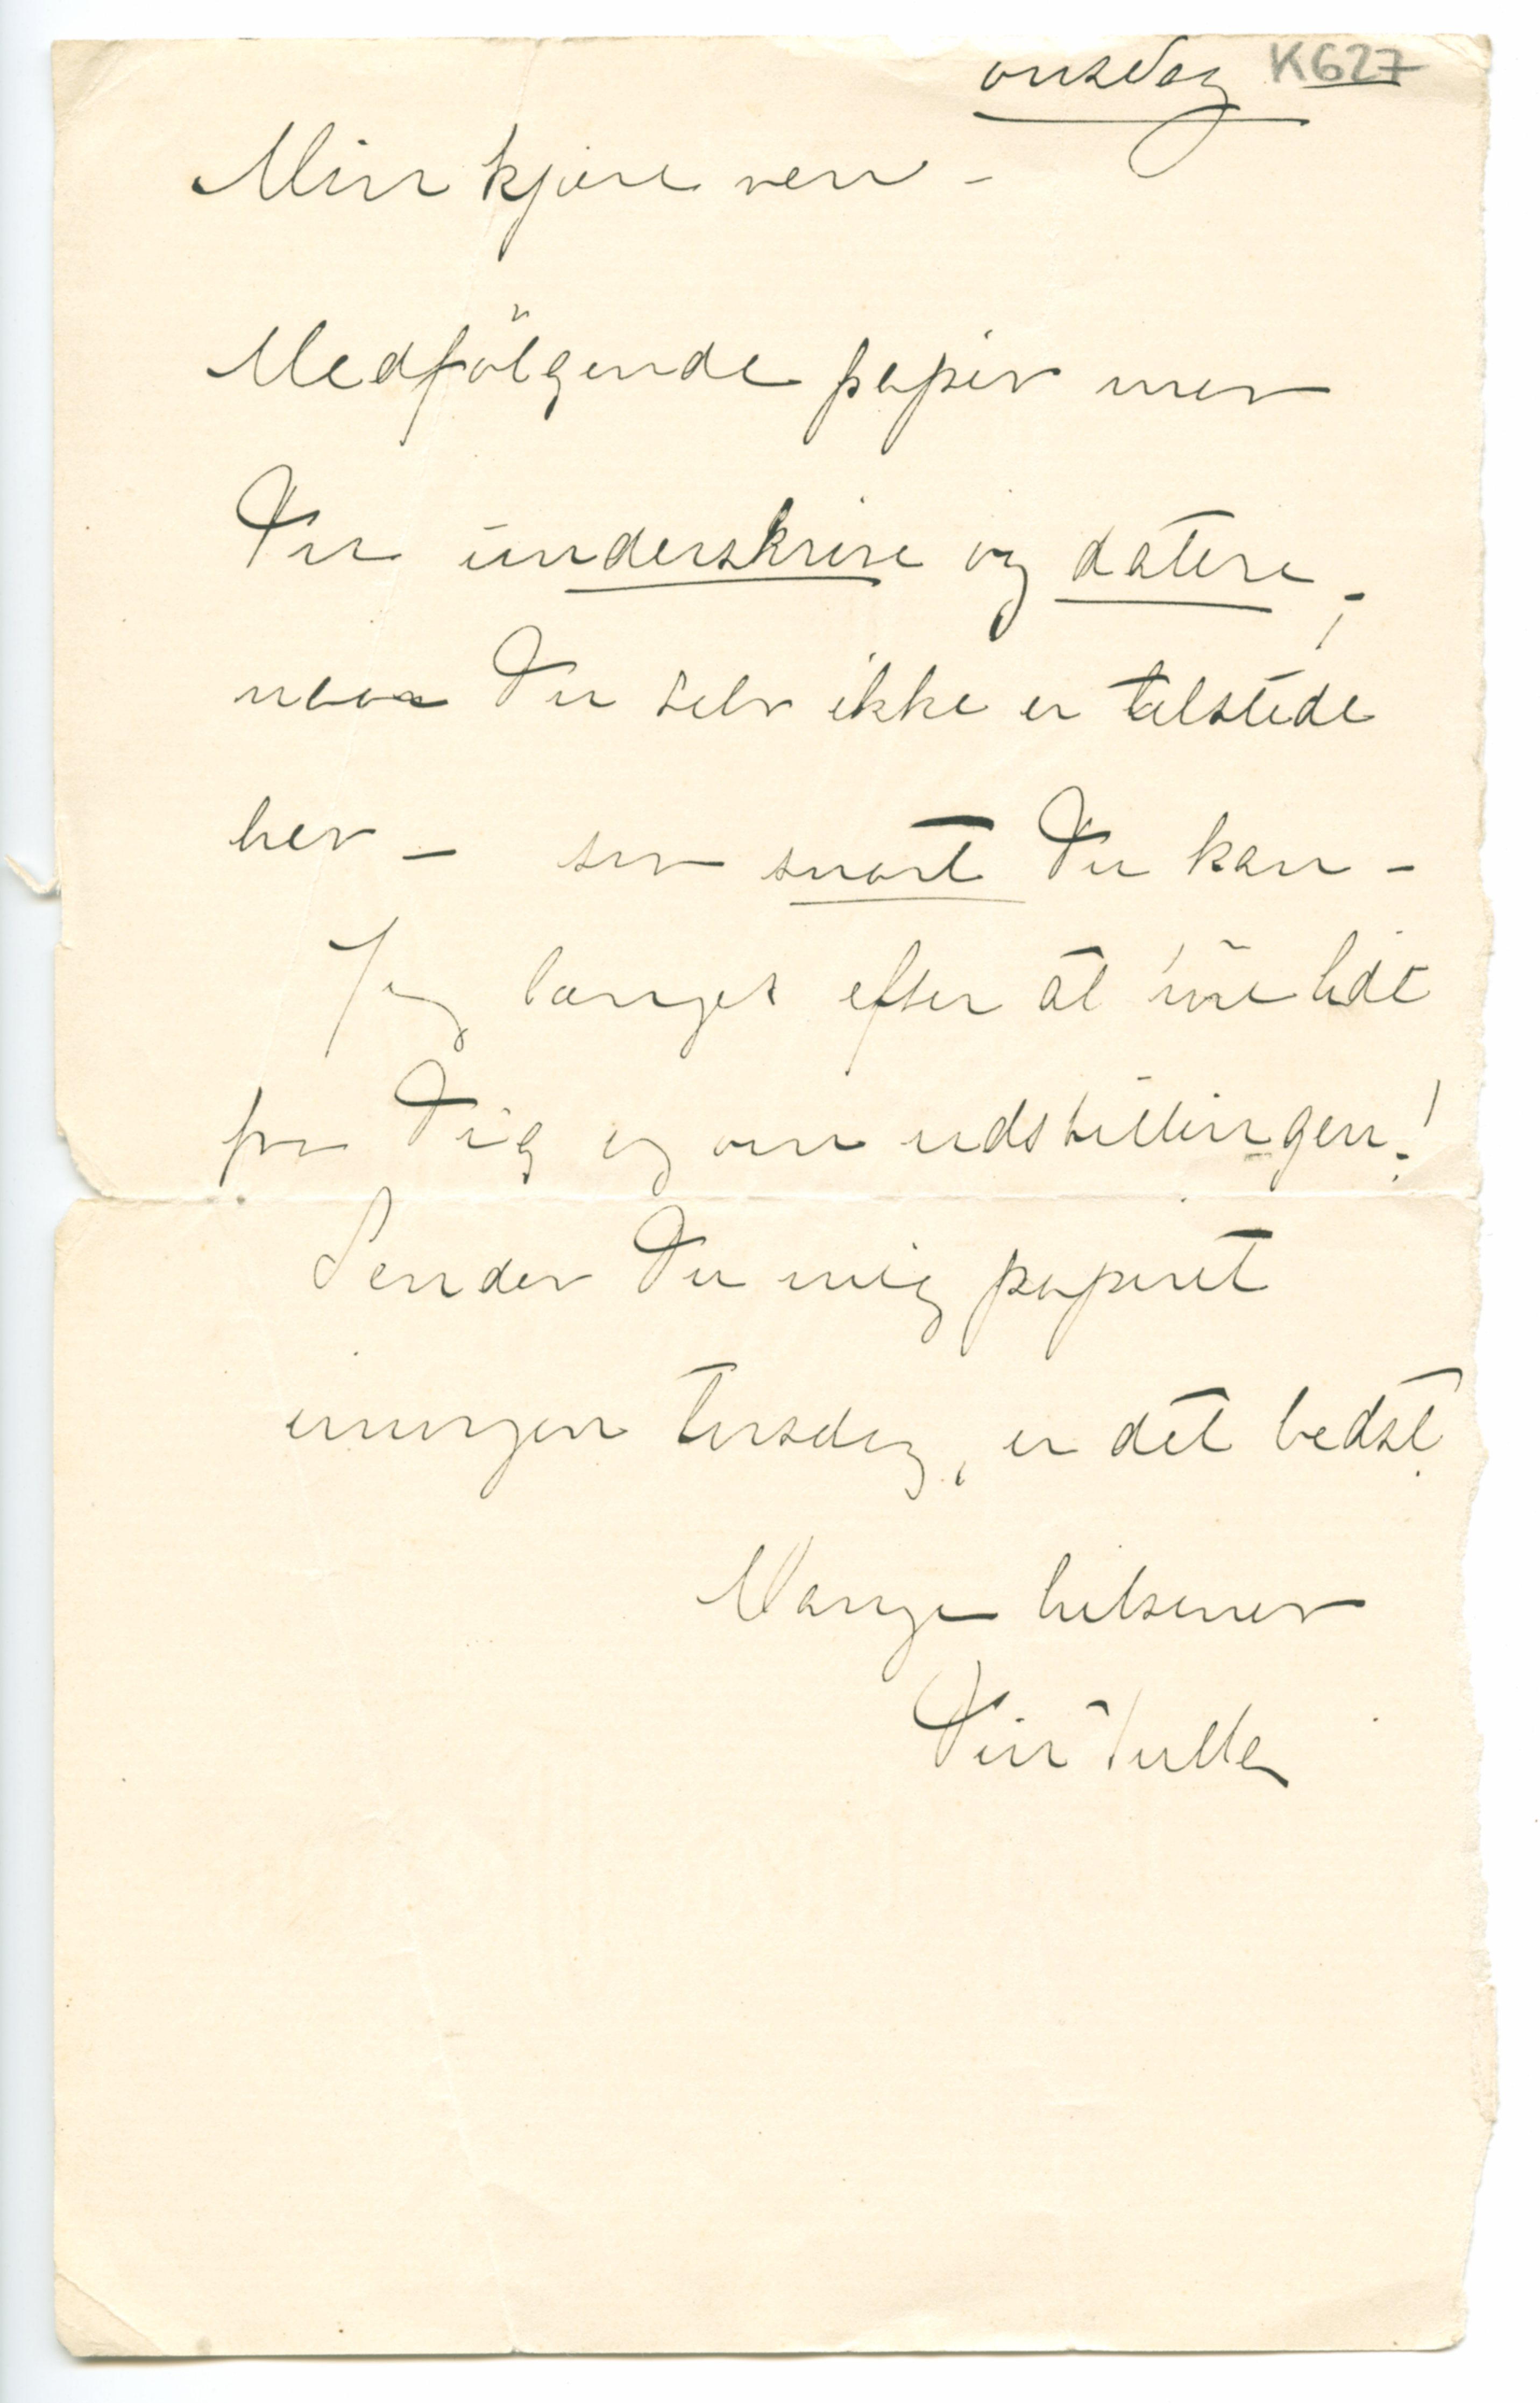 onsdag K627
Min kjære ven –
Medfölgende papir maa
Du underskrive og datere,
naar Du selv ikke er tilstede
her – saa snart Du kan –
Jeg længes efter at höre lidt
fra Dig og om udstillingen!
Sender Du mig papiret
imorgen torsdag, er det bedst.
Mange hilsener
Din Tulla